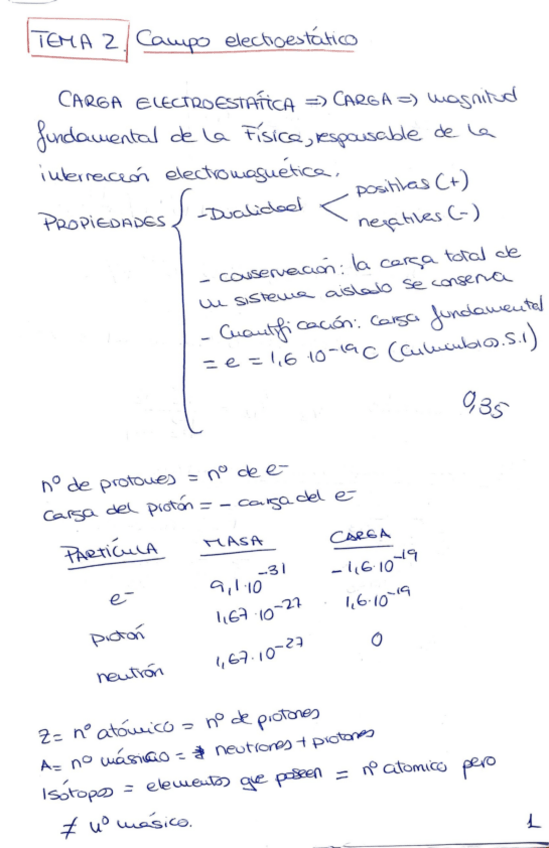 TEMA 2. Campo electroestático
CARGA ELECTROESTÁTICA => CARGA => magnitud
fundamental de la Física, responsable de la
interrección electromagnética.
PROPIEDADES { - Dualidad < positivas (+)
negatives (-)
- conservación: la carga total de
un sistema aislado se conserva
- Cuantificación: carga fundamental
= e = 1,6·10⁻¹⁹ C (Culumbios. S.I)
0,35
nº de protones = nº de e-
carga del protón = - carga del e-
PARTÍCULA MASA CARGA
e- 9,1·10⁻³¹ -1,6·10⁻¹⁹
protón 1,67·10⁻²⁷ 1,6·10⁻¹⁹
neutrón 1,67·10⁻²⁷ 0
Z = nº atómico = nº de protones
A = nº másico = neutrones + protones
Isótopos = elementos que poseen = nº atomico pero
≠ nº másico.
1